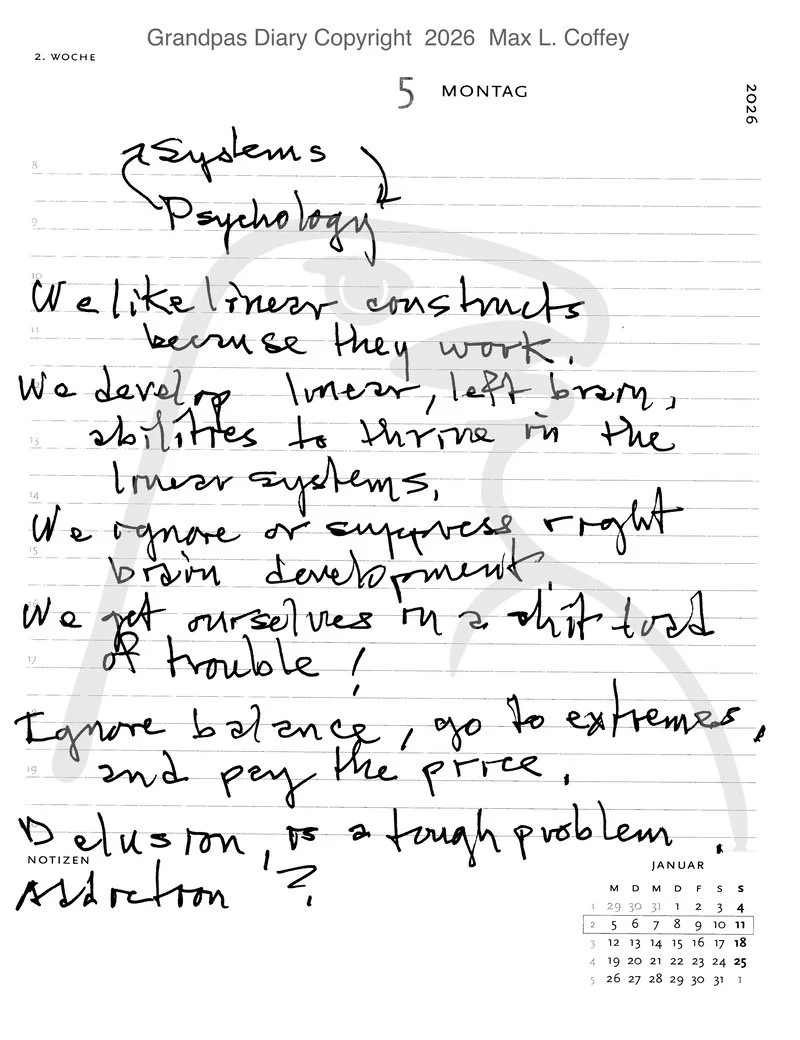 Grandpas Diary Copyright 2026 Max L. Coffey
2. WOCHE
5 MONTAG
2026
Systems
Psychology
We like linear constructs
because they work.
We develop linear, left brain,
abilities to thrive in the
linear systems.
We ignore or suppress right
brain development.
We get ourselves in a shit load
of trouble!
Ignore balance, go to extremes,
and pay the price.
Delusion, is a tough problem.
NOTIZEN
Addiction?
JANUAR
M D M D F S S
1 29 30 31 1 2 3 4
2 5 6 7 8 9 10 11
3 12 13 14 15 16 17 18
4 19 20 21 22 23 24 25
5 26 27 28 29 30 31 1
8
9
10
11
13
14
15
17
19